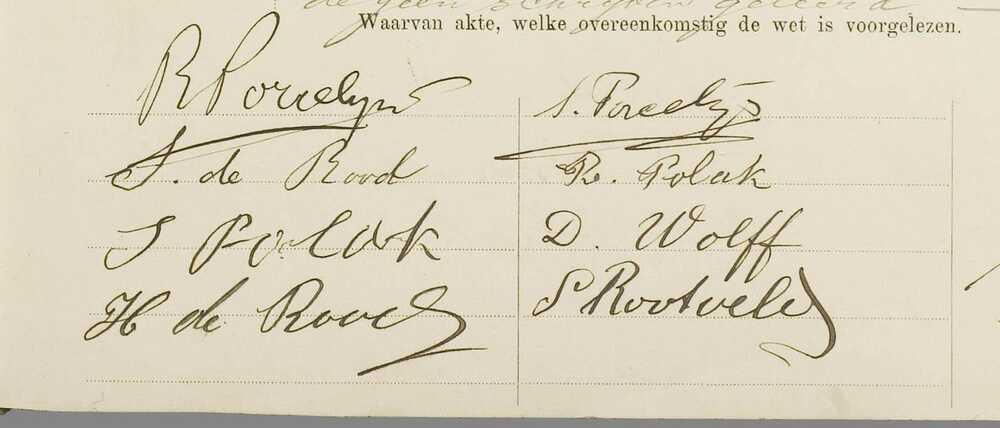 de geen schrijven geleerd
Waarvan akte, welke overeenkomstig de wet is voorgelezen.
R Porcelyn S. Porcelijn
S. de Rood R. Polak
S Polak D. Wolff
H de Rood S Rootveld